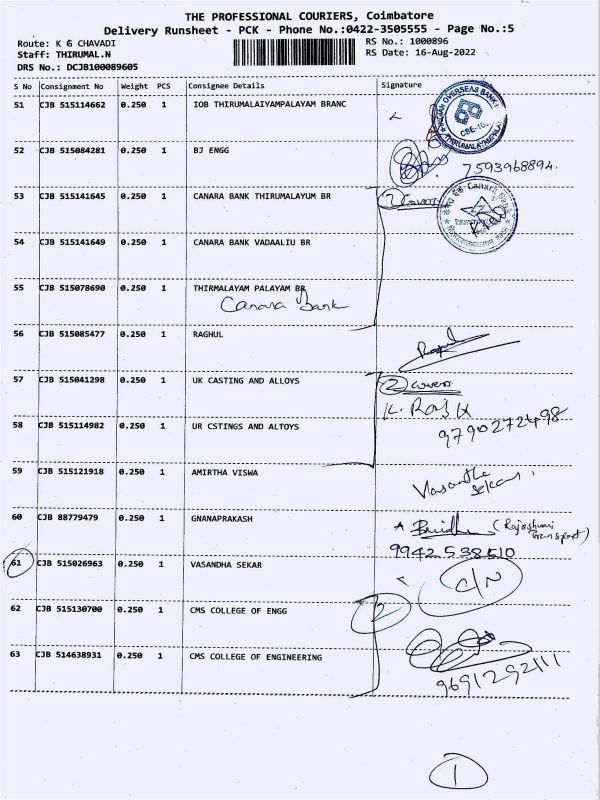 THE PROFESSIONAL COURIERS, Coimbatore
Delivery Runsheet - PCK - Phone No.:0422-3505555 - Page No.:5
Route: K G CHAVADI
RS No.: 1000896
Staff: THIRUMAL.N
RS Date: 16-Aug-2022
DRS No.: DCJB100089605
S No Consignment No Weight PCS Consignee Details Signature
51 CJB 515114662 0.250 1 IOB THIRUMALAIYAMPALAYAM BRANC
INDIAN OVERSEAS BANK
52 CJB 515084281 0.250 1 BJ ENGG
7593968894.
53 CJB 515141645 0.250 1 CANARA BANK THIRUMALAYUM BR
Canara Bank
54 CJB 515141649 0.250 1 CANARA BANK VADAALIU BR
55 CJB 515078690 0.250 1 THIRMALAYAM PALAYAM BR
Canara Bank
56 CJB 515085477 0.250 1 RAGHUL
57 CJB 515041298 0.250 1 UK CASTING AND ALLOYS
2 covers
58 CJB 515114982 0.250 1 UR CSTINGS AND ALTOYS
9790272498
59 CJB 515121918 0.250 1 AMIRTHA VISWA
Vasantha
Sekar
60 CJB 88779479 0.250 1 GNANAPRAKASH
9942538510
61 CJB 515026963 0.250 1 VASANDHA SEKAR
C/N
62 CJB 515130700 0.250 1 CMS COLLEGE OF ENGG
2
63 CJB 514638931 0.250 1 CMS COLLEGE OF ENGINEERING
9691292111
1